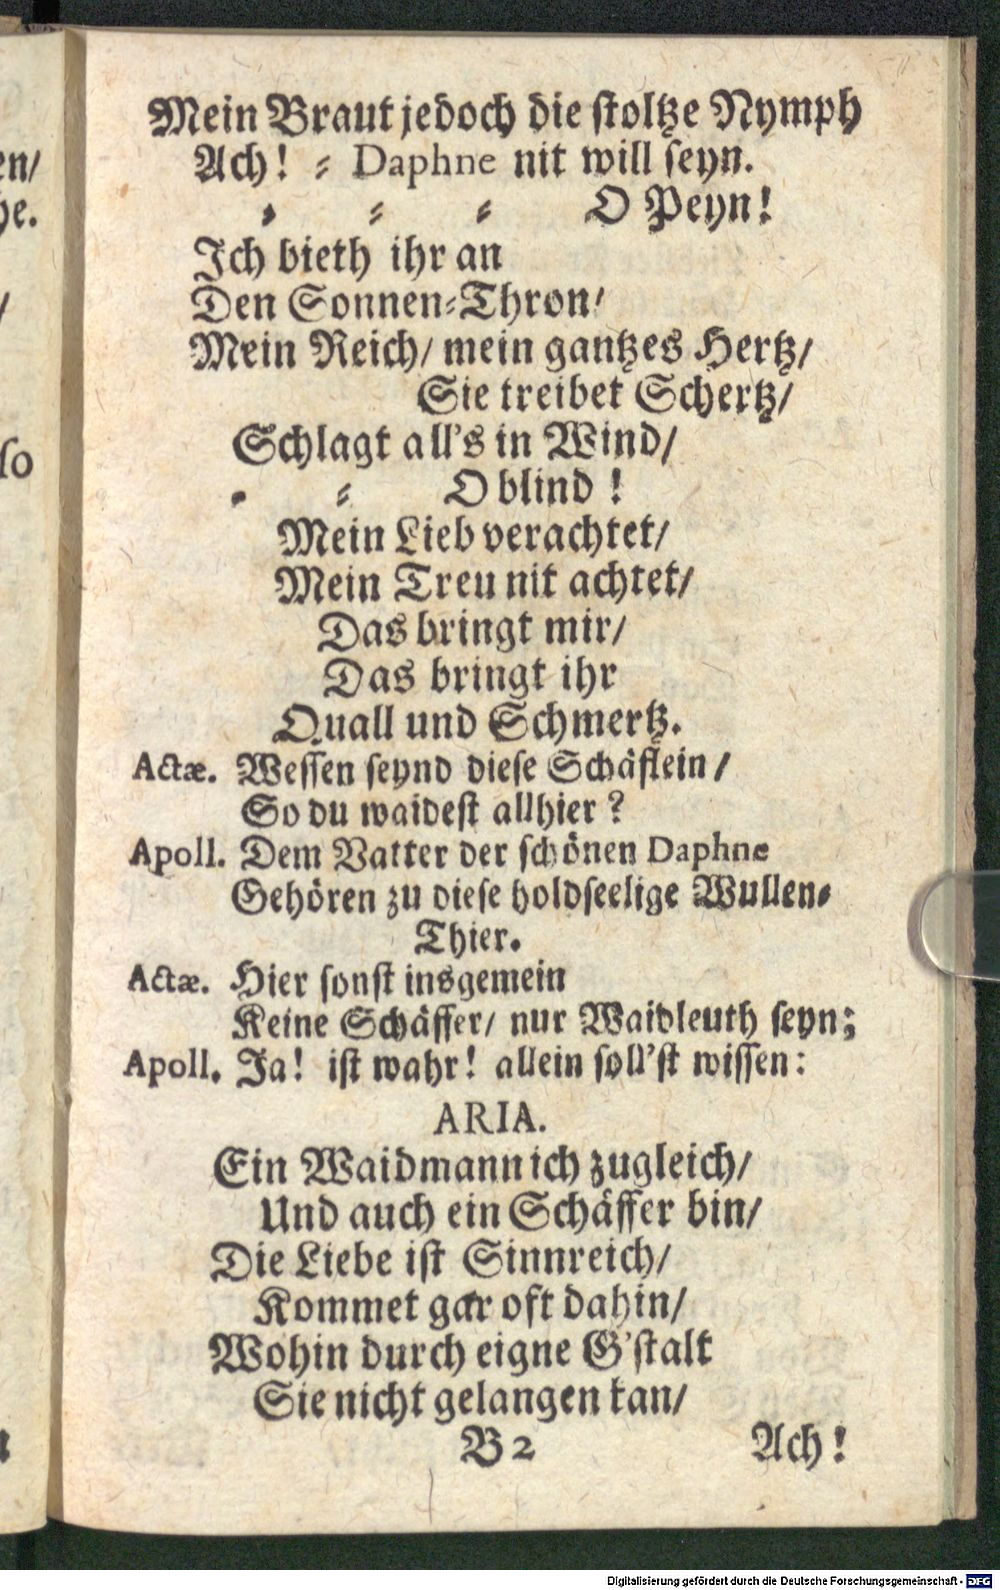 Mein Braut jedoch die stoltze Nymph
Ach! ⸗ Daphne nit will seyn.
⸗ ⸗ ⸗ O Peyn!
Ich bieth ihr an
Den Sonnen⸗Thron/
Mein Reich/ mein gantzes Hertz/
Sie treibet Schertz/
Schlagt all's in Wind/
⸗ ⸗ O blind !
Mein Lieb verachtet/
Mein Treu nit achtet/
Das bringt mir/
Das bringt ihr
Quall und Schmertz.
Actæ. Wessen seynd diese Schäflein /
So du waidest allhier ?
Apoll. Dem Vatter der schönen Daphne
Gehören zu diese holdseelige Wullen⸗
Thier.
Actæ. Hier sonst insgemein
Keine Schäffer/ nur Waidleuth seyn;
Apoll. Ja! ist wahr! allein soll'st wissen:
ARIA.
Ein Waidmann ich zugleich/
Und auch ein Schäffer bin/
Die Liebe ist Sinnreich/
Kommet gar oft dahin/
Wohin durch eigne G'stalt
Sie nicht gelangen kan/
B 2 Ach!
en/
he.
/
so
Digitalisierung gefördert durch die Deutsche Forschungsgemeinschaft - DFG